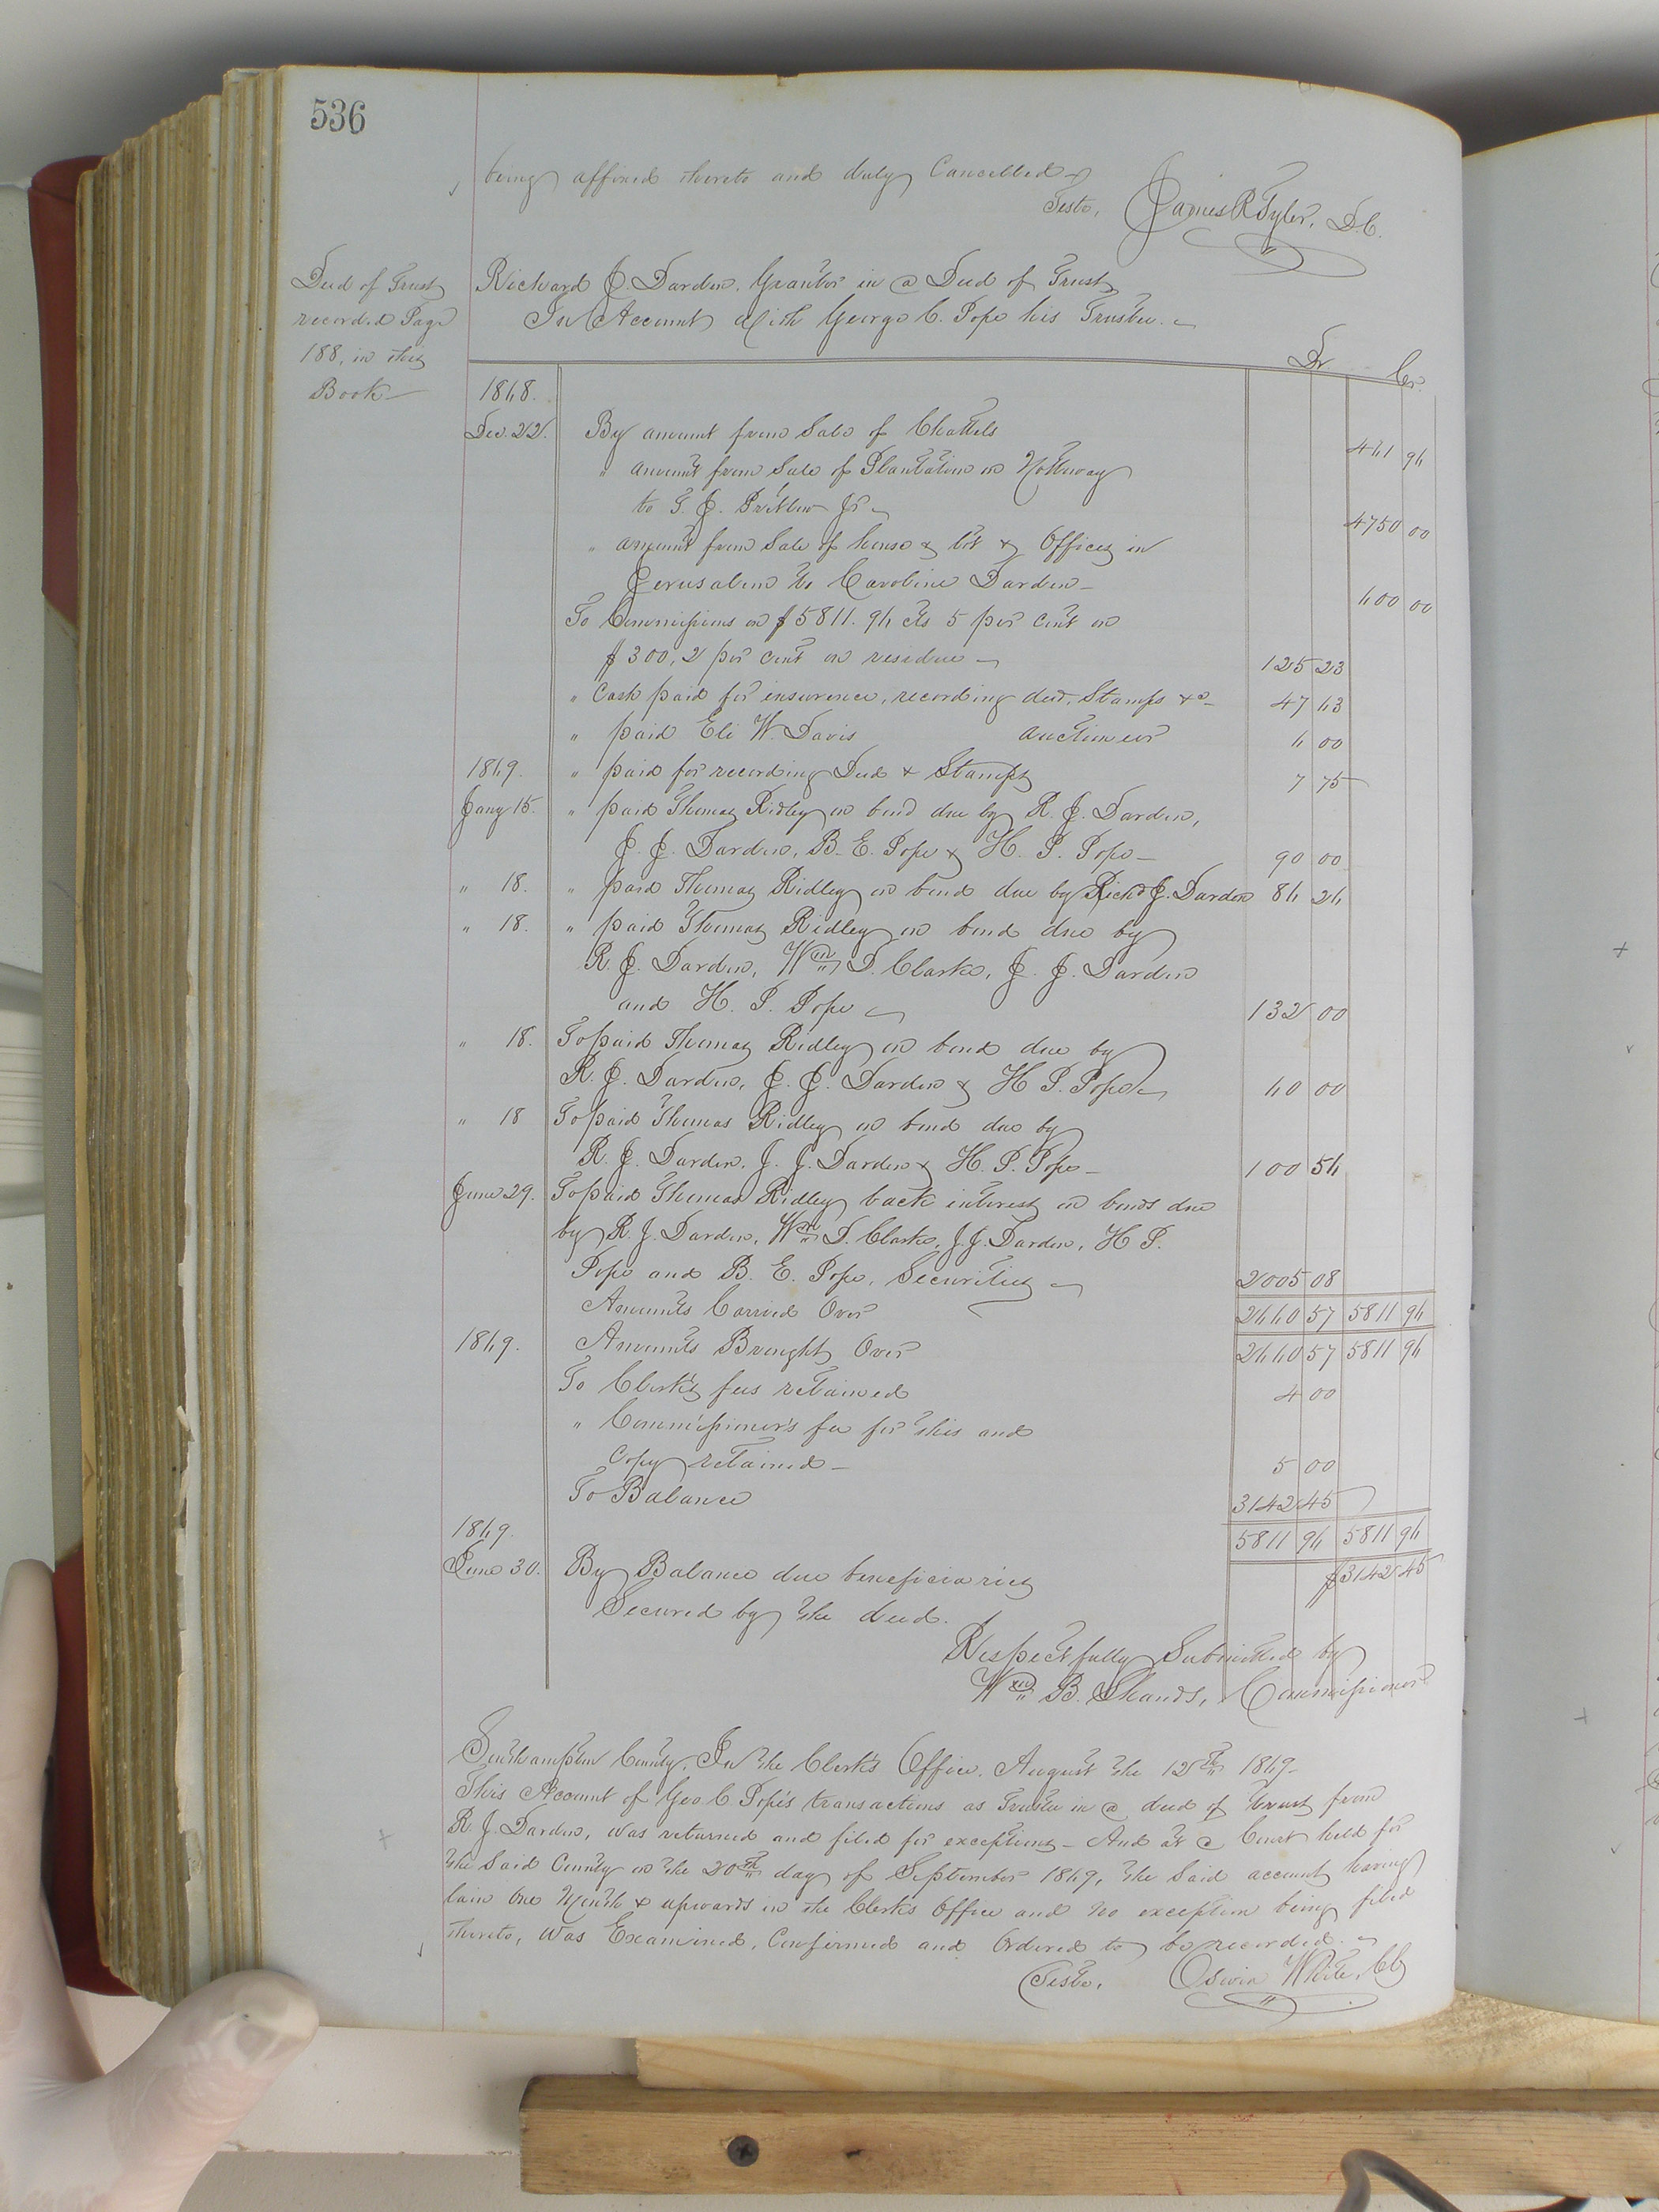 536
being affixed thereto and duly Cancelled
Teste, James R Tyler, D.C.
Deed of Trust
recorded Page
188, in this
Book
Richard J Darden, Grantor in a Deed of Trust
In Account with George C. Pope his Trustee.
Dr Cr.
1868.
Dec. 22. By amount from Sale of Chattels 461 96
" amount from Sale of Plantation on Nottoway
to T. J. Pretlow Jr 4750 00
" amount from Sale of house & lot & Offices in
Jerusalem to Caroline Darden 600 00
To Commissions on $5811.96 cts 5 per cent on
$300, 2 per cent on residue 125 23
" Cash paid for insurence, recording deed, Stamps &c 47 63
" paid Eli W. Davis auctioneer 6 00
1869. " paid for recording Deed & Stamps 7 75
Jany 15. " paid Thomas Ridley on bond due by R. J. Darden,
J. J. Darden, B. E. Pope & H. P. Pope 90 00
" 18. " paid Thomas Ridley on bond due by Richd J. Darden 86 26
" 18. " paid Thomas Ridley on bond due by
R. J. Darden, Wm D. Clarke, J. J. Darden
and H. P. Pope 132 00
" 18. To paid Thomas Ridley on bond due by
R. J. Darden, J. J. Darden & H P. Pope 60 00
" 18 To paid Thomas Ridley on bond due by
R. J. Darden, J. J. Darden & H. P. Pope 100 56
June 29. To paid Thomas Ridley back interest on bonds due
by R. J. Darden, Wm D. Clarke, J. J. Darden, H P.
Pope and B. E. Pope, Securities 2005 08
Amounts Carried Over 2660 51 5811 96
1869. Amounts Brought Over 2660 51 5811 96
To Clerk's fees retained 4 00
" Commissioner's fee for this and
Copy retained 5 00
To Balance 3142 45
1869. 5811 96 5811 96
June 30. By Balance due beneficiaries $3142 45
Secured by the deed.
Respectfully Submitted by
Wm B. Shands, Commissioner
Southampton County, In the Clerk's Office, August the 12th 1869
This Account of Geo C Pope's transactions as Trustee in a deed of trust from
R. J. Darden, was returned and filed for exceptions - And at a Court held for
the Said County on the 20th day of September 1869, the Said account having
lain One Month & upwards in the Clerk's Office and no exception being filed
thereto, was Examined, Confirmed and Ordered to be recorded.
Teste, Oswin White, Clk